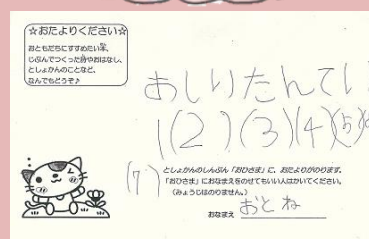 ☆おたよりください☆
おともだちにすすめたい本、
じぶんでつくった詩やおはなし、
としょかんのことなど、
なんでもどうぞ♪
おしりたんてい
1(2)(3)(4)(5)
(7)
としょかんのしんぶん「おひさま」に、おたよりがのります。
「おひさま」におなまえをのせてもいい人はかいてください。
(みょうじはのりません。)
おなまえ おとね